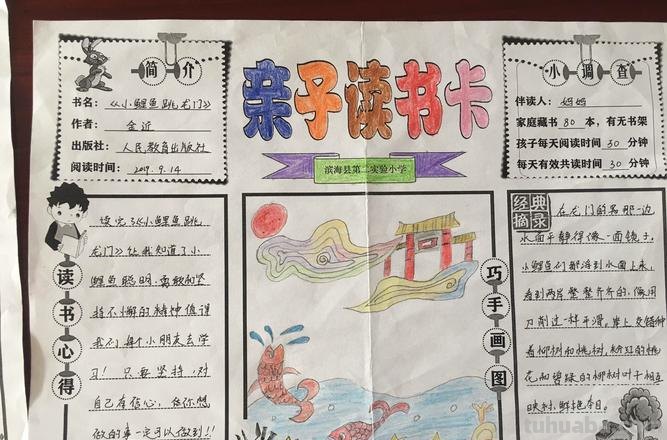 简介
书名：《小鲤鱼跳龙门》
作者：金近
出版社：人民教育出版社
阅读时间：2019.9.14
亲子读书卡
滨海县第二实验小学
小调查
伴读人：妈妈
家庭藏书80本，有无书架
孩子每天阅读时间30分钟
每天有效共读时间30分钟
读书心得
读完了《小鲤鱼跳
龙门》让我知道了小
鲤鱼聪明、勇敢和坚
持不懈的精神值得
我们每个小朋友去学
习！只要坚持，对
自己有信心，任何想
做的事一定可以做到！！
巧手画图
经典摘录
在龙门的另那一边
水面平静得像一面镜子，
小鲤鱼们都浮到水面上来，
看到两岸整整齐齐的，像用
刀削过一样平滑。岸上交错种
着柳树和桃树，粉红的桃
花和碧绿的柳树叶子相互
映衬，鲜艳夺目。
tuhuaba.com